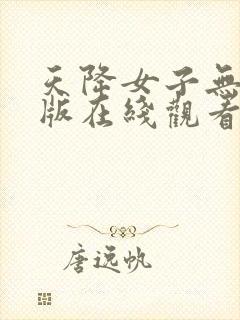 天降女子無
版在綫觀看
唐遠帆